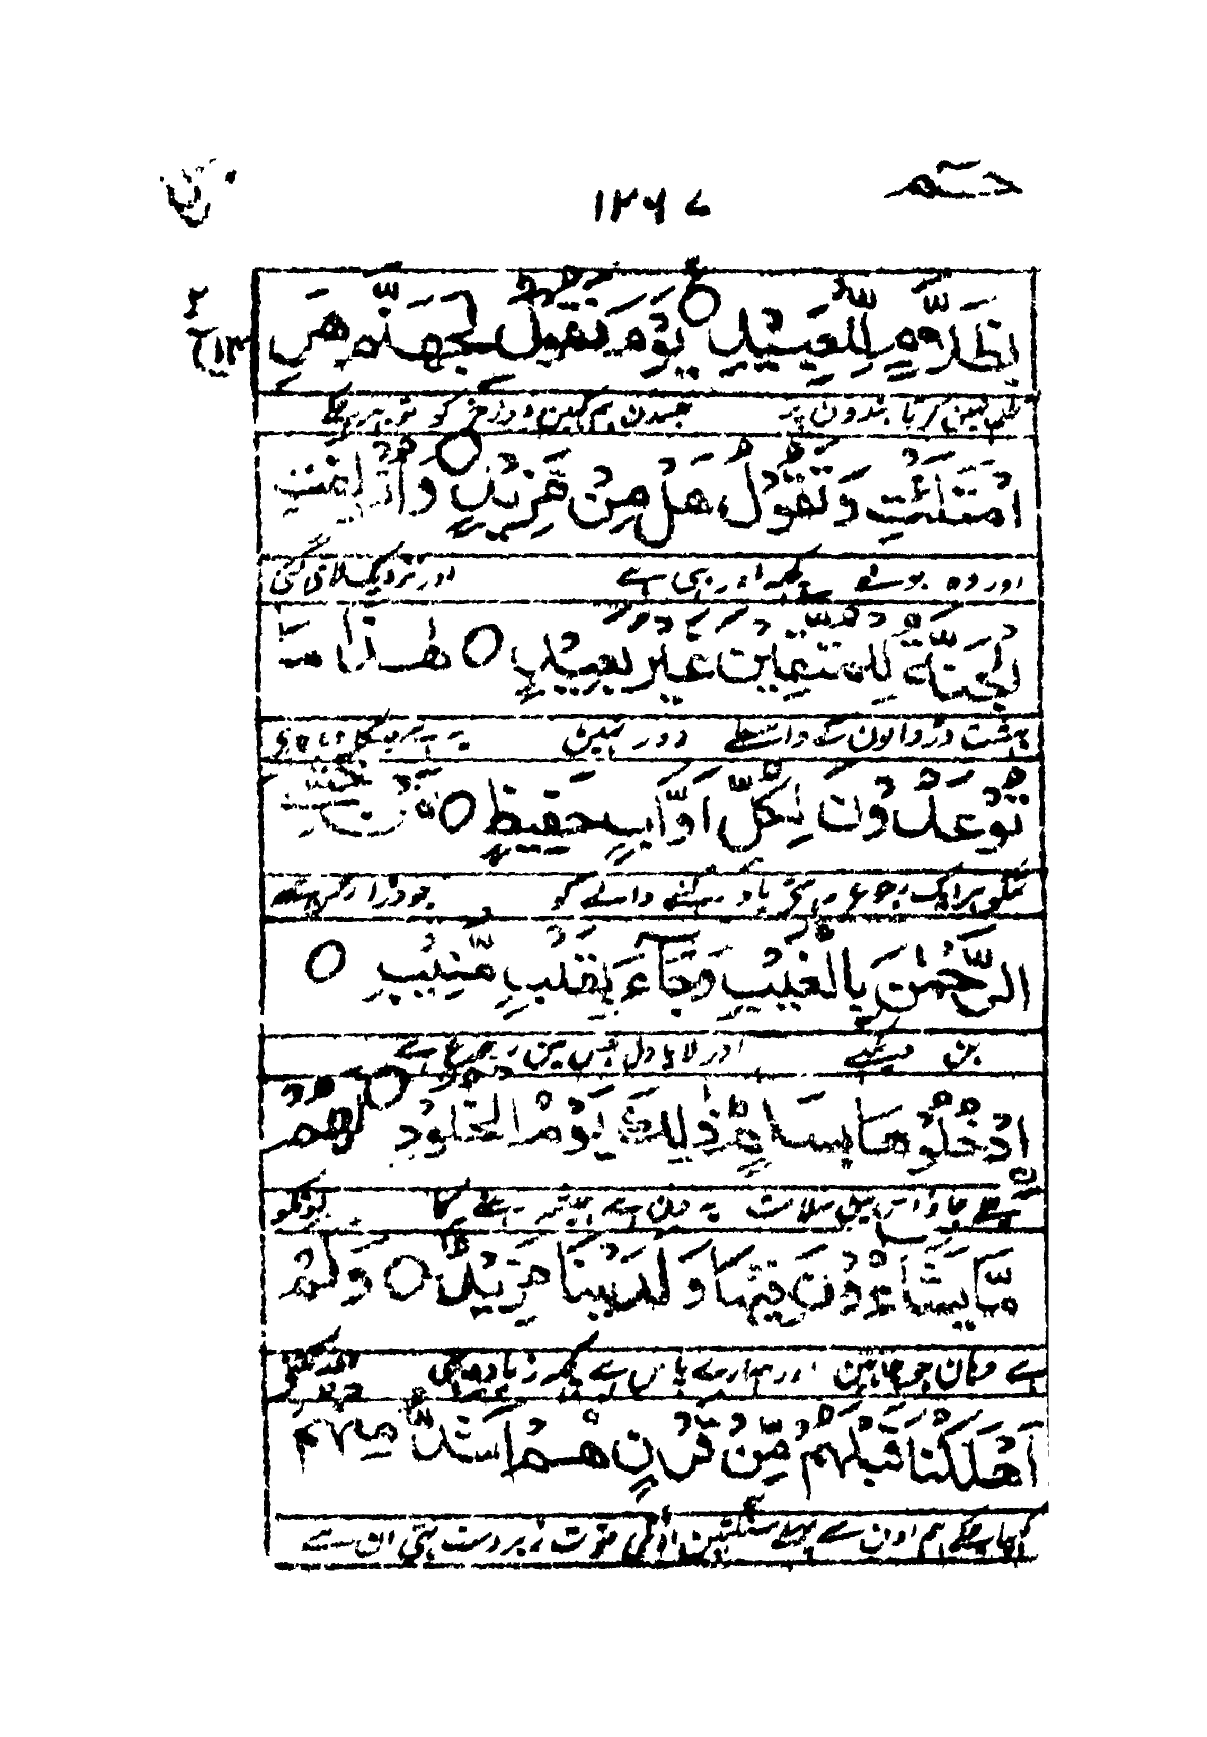 حٰم ١٢٦٧ ق
بِظَلَّامٍ لِّلْعَبِيْدِ ○ يَوْمَ نَقُوْلُ لِجَهَنَّمَ هَلِ
ظلم نہین کرتا بندون پر جسدن ہم کہین دوزخ کو تو بہر چکے
امْتَلَئْتِ وَتَقُوْلُ هَلْ مِنْ مَّزِيْدٍ ○ وَاُزْلِفَتِ
اور وہ بولے کچھ اور بہی ہے اور نزدیک لائی گئی
الْجَنَّةُ لِلْمُتَّقِيْنَ غَيْرَ بَعِيْدٍ ○ هٰذَا مَا
بہشت ڈر والون کے واسطے دور نہین یہ ہے جسکا وعدہ
تُوْعَدُوْنَ لِكُلِّ اَوَّابٍ حَفِيْظٍ ○ مَنْ خَشِيَ
تمکو ہر ایک رجوع یاد رکہنے والے کو جو ڈرا رحمن سے
الرَّحْمٰنَ بِالْغَيْبِ وَجَآءَ بِقَلْبٍ مُّنِيْبٍ ○
بن دیکہے اور لایا دل جس مین رجوع ہے
ادْخُلُوْهَا بِسَلٰمٍ ذٰلِكَ يَوْمُ الْخُلُوْدِ ○ لَهُمْ
چلے جاؤ اس مین سلامت یہ دن ہے ہمیشہ رہنے کا اونکو
مَّا يَشَآءُوْنَ فِيْهَا وَلَدَيْنَا مَزِيْدٌ ○ وَكَمْ
ہے وہان جو چاہین اور ہمارے پاس ہے کچھ زیادہ بہی اور کتنی
اَهْلَكْنَا قَبْلَهُمْ مِّنْ قَرْنٍ هُمْ اَشَدُّ مِنْهُمْ
کہپا چکے ہم اون سے پہلے سنگتین اونکی قوت زبردست تہی ان سے